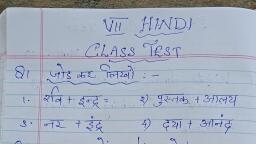 VII HINDI
CLASS TEST
Q1 जोड कर लिखो :-
1. रवि + इन्द्र = 2) पुस्तक + आलय
3. नर + इंद्र 4) दया + आनंद